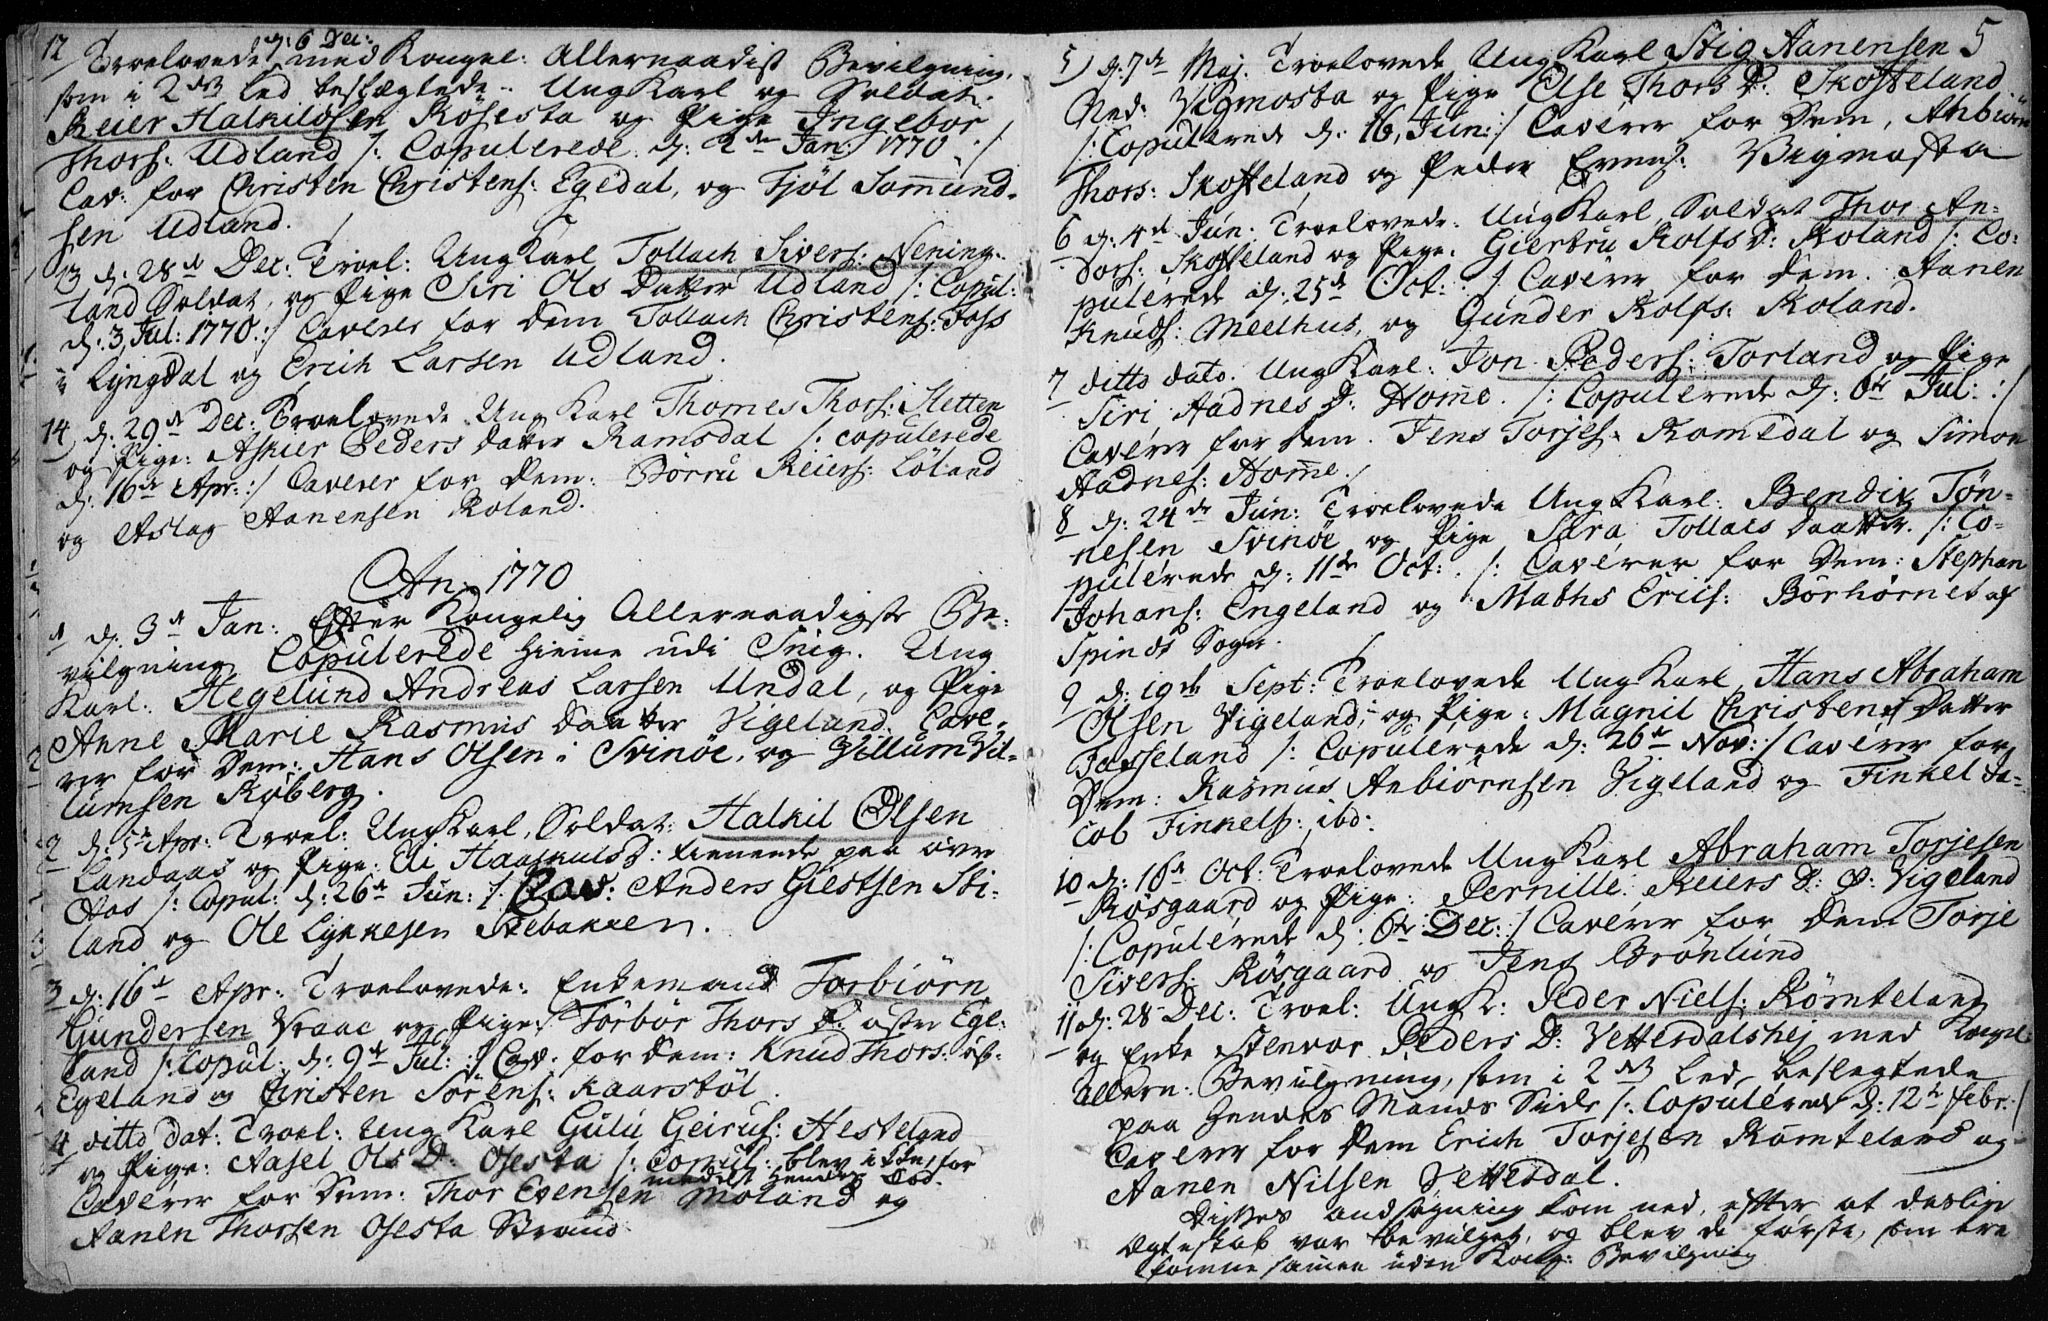 12 Troelovede d: 6 Dec: med Kongel: Allernaadist Bevilgning,
som i 2det Led beslægtede. Ung Karl og Soldat:
Reier Halkildsen Røsesta og Pige Ingebor
Thors: Udland /: Copulerede d: 2de Jan: 1770 :/
Cav: for Christen Christens: Egedal, og Tjøl Samund-
sen Udland.
13 d: 28d Dec: Troel: Ung Karl Tollach Sivers: Nening-
land Soldat, og Pige Siri Ols Datter Udland /: Copul:
d: 3 Jul: 1770 :/ Caverer for Dem Tollach Christens: Foss
i Lyngdal og Erich Larsen Udland.
14 d: 29d Dec: Troelovede Ung Karl Thomes Thors: Stetten
og Pige: Asкier Peders Datter Ramsdal /: copulerede
d: 16de Apr: :/ Caverer for Dem: Børru Reiers: Løland
og Aslag Aanensen Roland.
An: 1770
1 d: 3d Jan: Efter Kongelig Allernaadigste Be-
vilgning Copulerede hieme udi Snig. Ung
Karl: Hegelund Andreas Larsen Undal, og Pige
Anne Marie Rasmus Daatter Vigeland. Cave-
rer for Dem: Hans Olsen i Svinøe, og Villum Vil-
lumsen Røberg.
2 d: 5te Apr: Troel: Ung Karl, Soldat: Halkil Olsen
Landaas og Pige: Eli tienende paa øvre
Aas /: Copul: d: 26d Jun: :/ Cav: Anders Giestsen Sti-
land og Ole Lykkesen Stebakken.
3 d: 16d Apr: Troelovede: Enkemand Torbiørn
Gundersen Vraae og Pige: Torbor Thors D: østre Ege-
land /: Copul: d: 9d Jul: :/ Cav: for Dem: Knud Thors: øst-
Egeland og Christen Sørens: Kaarstøl.
4 ditto dat: Troel: Ung Karl Gulu Geirus: Hesteland
og Pige: Aasel Ols D: Osesta /: Copul: blev intet, for
medelst hendes Død.
Caverer for Dem: Thor Evensen Moland og
Aanen Thorsen Osesta Strand
5
5) d: 7de Maj. Troelovede Ung Karl Stig Aanensen
Ned: Vigmosta og Pige Else Thors D: Skofteland
/: Copulerede d: 16, Jun: :/ Caverer for Dem, Anbiørn
Thors: Skofteland og Peder Evens: Vigmosta
6 d: 4d Jun: Troelovede: Ung Karl, Soldat Thor An-
dors: Skofteland og Pige: Giertru Rolfs D: Roland /: Co-
pulerede d: 25d Oct: :/ Caverer for Dem. Aanen
Knuds: Meelhus, og Gunder Rolfs: Roland.
7 ditto dato. Ung Karl: Jon Peders: Torland og Pige
Siri Aadnes D: Home. /: Copulerede d: 6te Jul: :/
Caverer for Dem. Jens Torjes: Romedal og Simon
Aadnes: Home. /
8 d: 24de Jun: Troelovede Ung Karl: Bendix Tøn-
nesen Svinøe og Pige Sara Tollacs Daatter. /: Co-
pulerede d: 11te Oct: :/ Caverer for Dem: Stephan
Johans: Engeland og Maths Erics: Børhørnet af
Spinds Sogn. /
9 d: 19de Sept: Troelovede Ung Karl Hans Abraham
Olsen Vigeland, og Pige: Magnil Christens Datter
Fasseland /: Copulerede d: 26d Nov: :/ Caverer for
Dem: Rasmus Anbiørnsen Vigeland og Finkel Ja-
cob Finkels: ibd:
10 d: 18d Oct: Troelovede Ung Karl Abraham Torjesen
Røsgaard og Pige: Pernille Reiers D: Ø: Vigeland
/: Copulerede d: 6te Dec: :/ Caverer for Dem Torje
Sivers: Røsgaard og Jens Brønlund
11 d: 28 Dec: Troel: Ung K: Peder Niels: Rømteland
og Enke Stenvor Peders D: Vetterdalshej med Kongl:
allern: Bevilgning, som i 2det Led beslegtede
paa hendes Mands Side /: Copulered d: 12te Febr: :/
Caverer for Dem Erich Torjesen Rømteland og
Aanen Nilsen Vetterdal.
Disses andsøgning kom ned, efter at deslige
Ægteskab var bevilget, og blev de første, som ere
komne samen uden Kong: Bevilgning